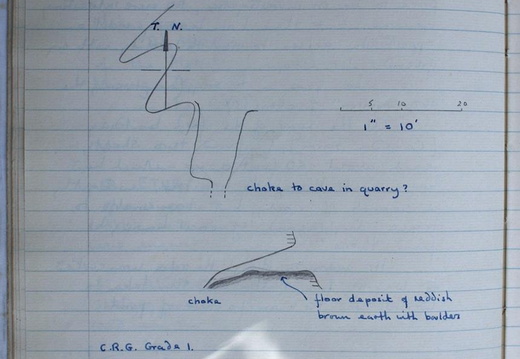 T. N.
5 10 20
1" = 10'
choke to cave in quarry?
choke
floor deposit of reddish
brown earth with boulders
C.R.G. Grade 1.